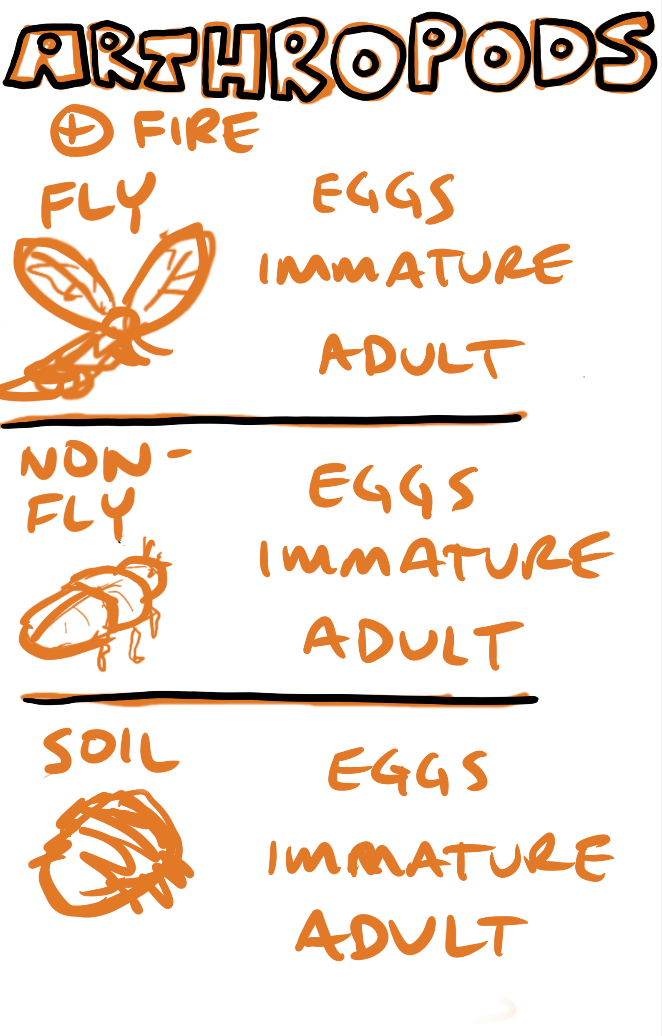 ARTHROPODS
⊕ FIRE
FLY
EGGS
IMMATURE
ADULT
NON-
FLY
EGGS
IMMATURE
ADULT
SOIL
EGGS
IMMATURE
ADULT